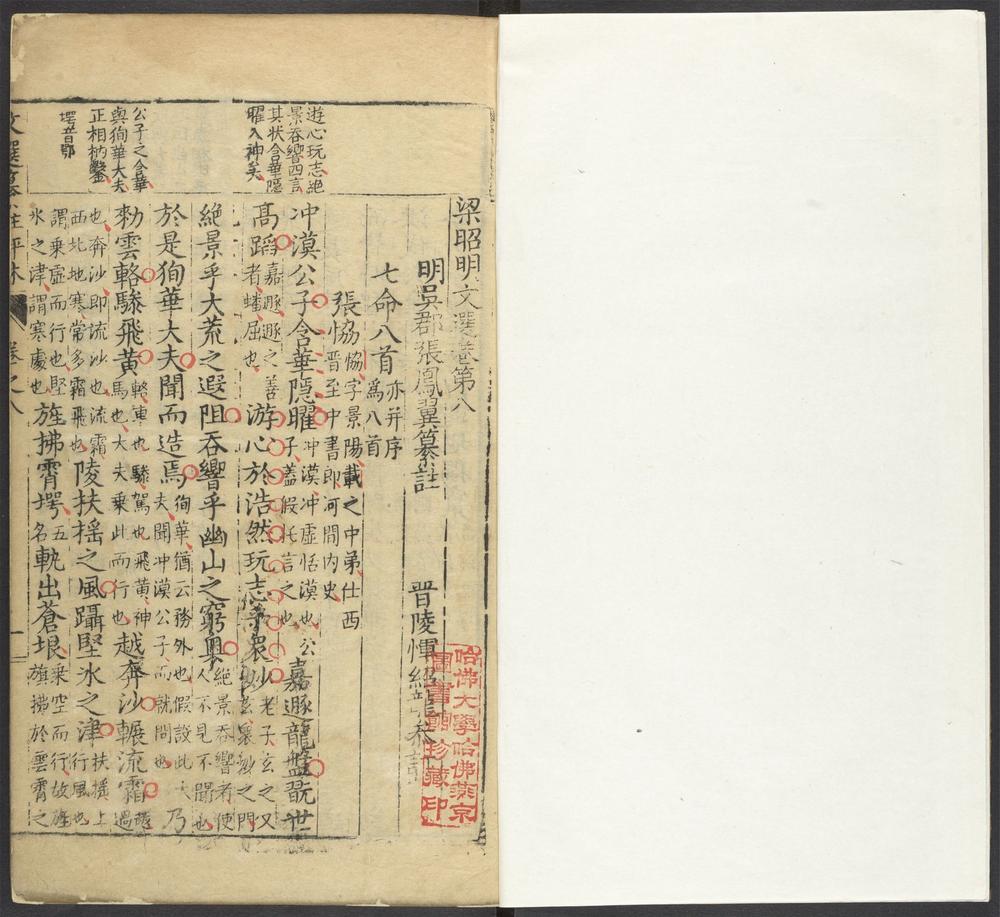 梁昭明文選卷第八
明吳郡張鳳翼纂註
晉陵惲紹龍參訂
哈佛大學哈佛燕京
圖書館珍藏印
七命八首
亦并序
爲八首
張協
協字景陽載之中弟仕西
晋至中書郎河間内史
冲漠公子含華隱曜
冲漠冲虚恬漠也公
子蓋假托言之也
嘉遯龍盤翫世
高蹈
嘉遯遯之善
者蟠屈也
游心於浩然玩志乎衆妙
老子玄之又
玄衆妙之門
絶景乎大荒之遐阻吞響乎幽山之窮奥
絶景吞響者使
人不見不聞也
於是狥華大夫聞而造焉
狥華猶云務外也假設此大
夫聞冲漠公子而就問也
乃
勑雲輅驂飛黄
輅車也驂駕也飛黄神
馬也大夫乗此而行也
越奔沙輾流霜
過
也奔沙即流沙也流霜
西北地寒常多霜飛也
陵扶揺之風躡堅氷之津
扶揺上
行風也
謂乗虚而行也堅
氷之津謂寒處也
旌拂霄堮
五
名
軌出蒼垠
乗空而行故旌
旗拂於雲霄之
遊心玩志絶
景吞響四言
其状含華隱
曜入神矣
公子之含華
與狥華大夫
正相枘鑿
堮音鄂
卷之八
一